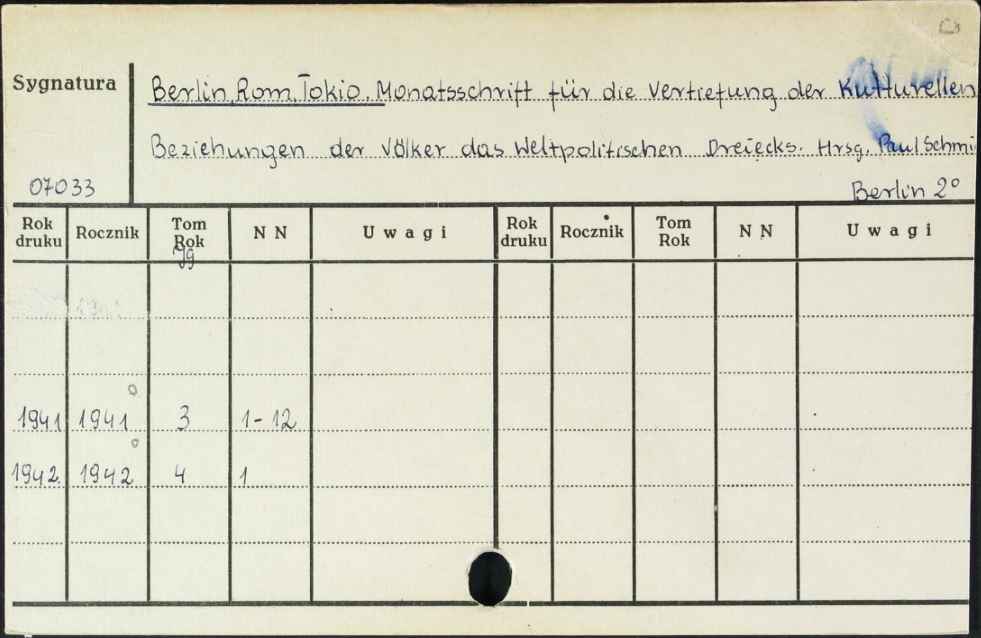 Sygnatura
Berlin, Rom, Tokio. Monatsschrift für die Vertiefung der Kulturellen
Beziehungen der Völker das Weltpolitischen Dreiecks. Hrsg. Paul Schmi
07033
Berlin 2°
Rok druku Rocznik Tom Rok NN Uwagi Rok druku Rocznik Tom Rok NN Uwagi
Jg
1941 1941 3 1-12
1942 1942 4 1